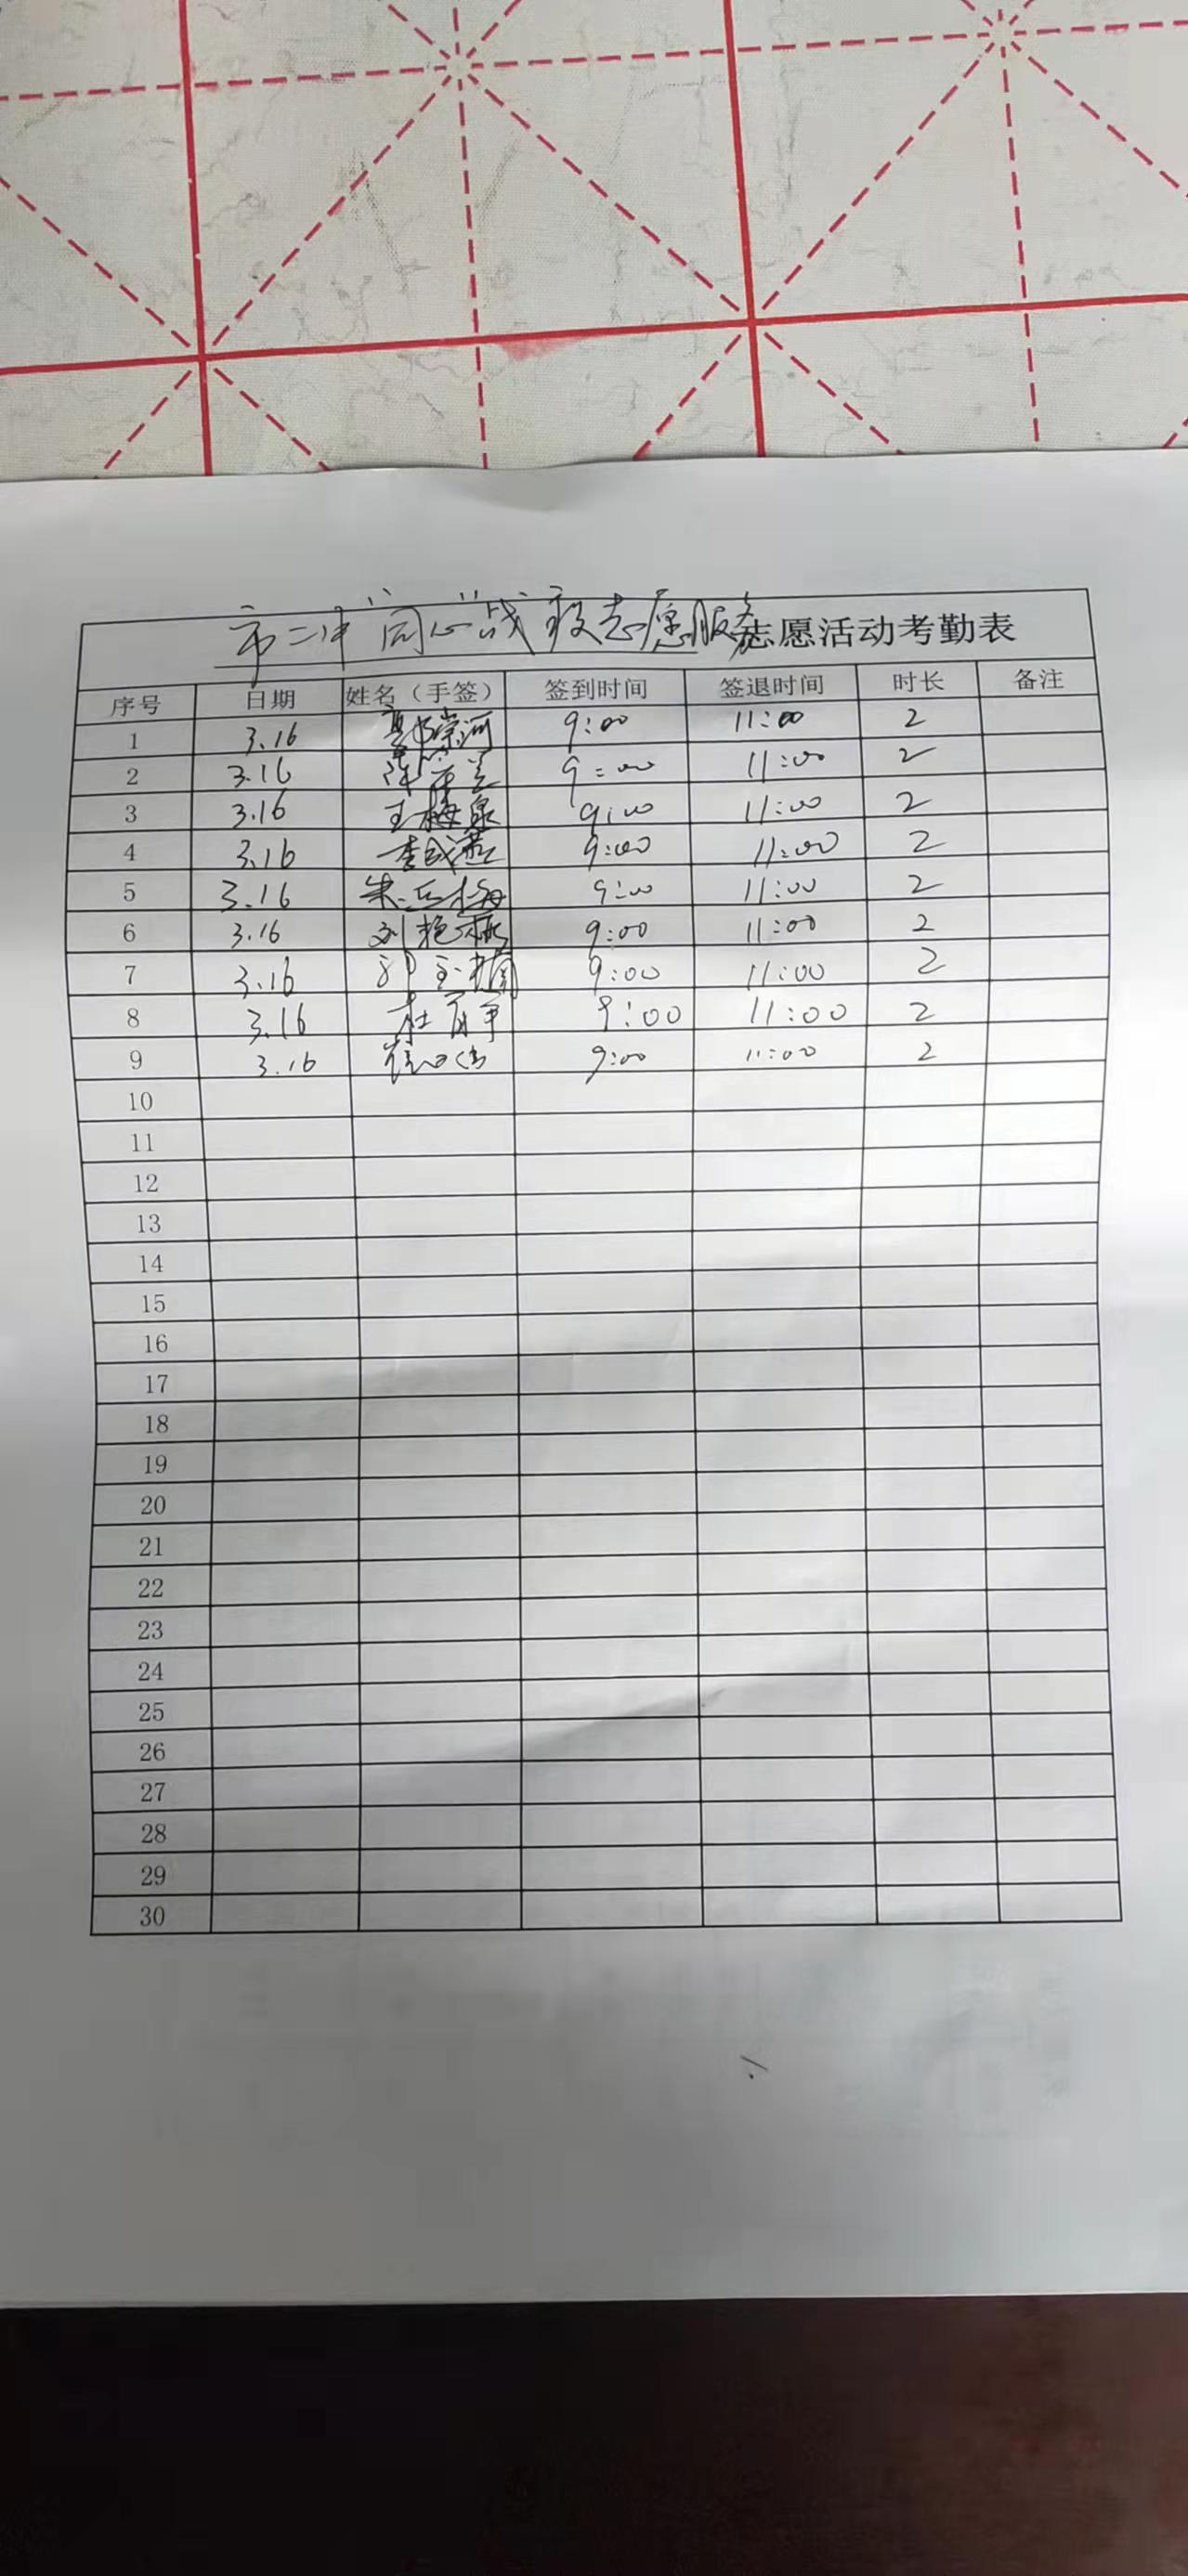 市二中“同心战疫志愿服务志愿活动考勤表
序号 日期 姓名（手签） 签到时间 签退时间 时长 备注
1 3.16 郭崇河 9:00 11:00 2
2 3.16 9:00 11:00 2
3 3.16 王梅泉 9:00 11:00 2
4 3.16 李成燕 9:00 11:00 2
5 3.16 朱丘梅 9:00 11:00 2
6 3.16 刘艳桃 9:00 11:00 2
7 3.16 9:00 11:00 2
8 3.16 9:00 11:00 2
9 3.16 9:00 11:00 2
10
11
12
13
14
15
16
17
18
19
20
21
22
23
24
25
26
27
28
29
30